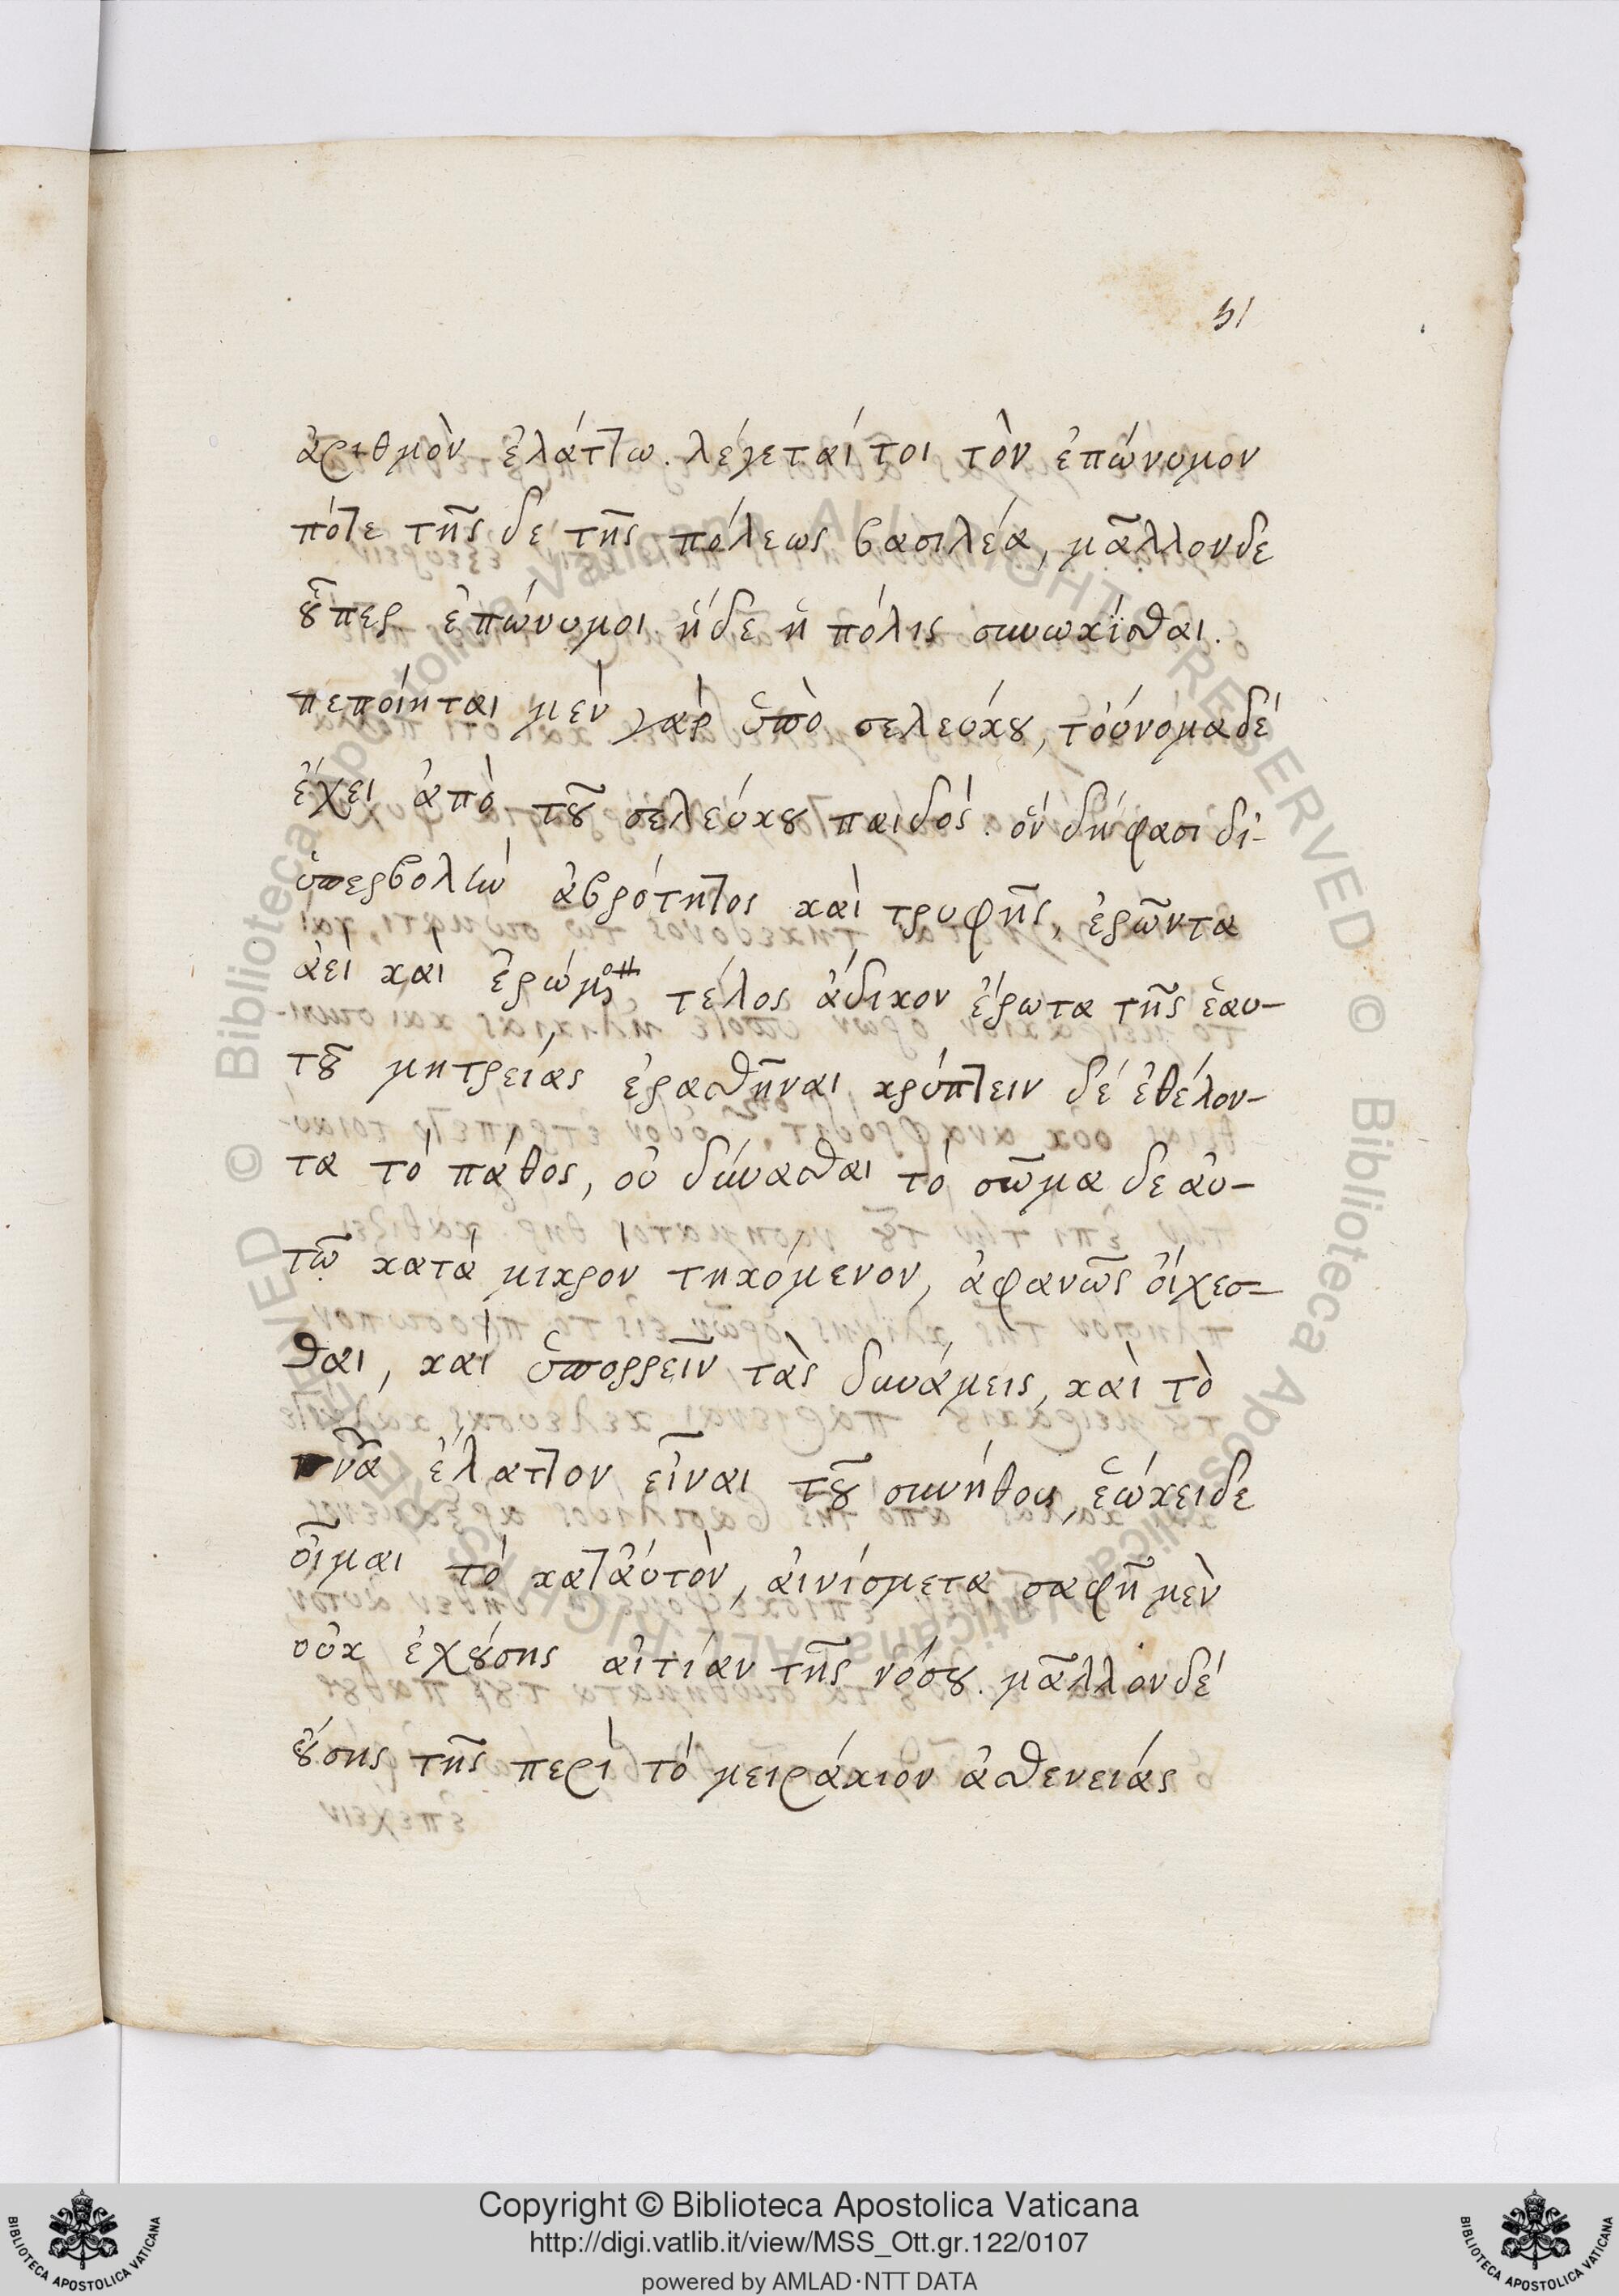 51
ἀριθμὸν ἐλάττω. λέγεταί τοι τὸν ἐπώνυμον
πότε τῆς δε τῆς πόλεως βασιλέα, μᾶλλονδε
οὗπερ ἐπώνυμοι ἥδε ἡ πόλις συνωκίσθαι.
πεποίηται μεν γὰρ ὑπὸ σελεύκου, τόυνομαδέ
ἔχει ἀπὸ τοῦ σελεύκου παιδός. ὅν δήφασι δι-
ὑπερβολὴν ἁβρότητος καὶ τρυφῆς, ἐρῶντα
ἀει καὶ ἐρώμ τέλος ἄδικον ἔρωτα τῆς ἑαυ-
τοῦ μητρειάς ἐρασθῆναι κρύπτειν δέ ἐθέλον-
τα τό πάθος, οὐ δύνασθαι τό σῶμα δε αὐ-
τῶ κατά μικρον τηκόμενον, ἀφανῶς ὄιχεσ-
θαι, και ὑπορρεῖν τὰς δυνάμεις, καὶ τὸ
πνᾶ ἔλαττον εἶναι τοῦ συνήθους, ἑώκειδε
ὄιμαι τό κατἀυτὸν, ἀινίσμετα σαφῆ μὲν
οὐκ ἐχούσης ἀιτίαν τῆς νόσου. μᾶλλον δέ
ὄυσης τῆς περὶ τό μειράκιον ἀσθενειάς
Copyright © Biblioteca Apostolica Vaticana
http://digi.vatlib.it/view/MSS_Ott.gr.122/0107
powered by AMLAD·NTT DATA
BIBLIOTECA APOSTOLICA VATICANA
BIBLIOTECA APOSTOLICA VATICANA